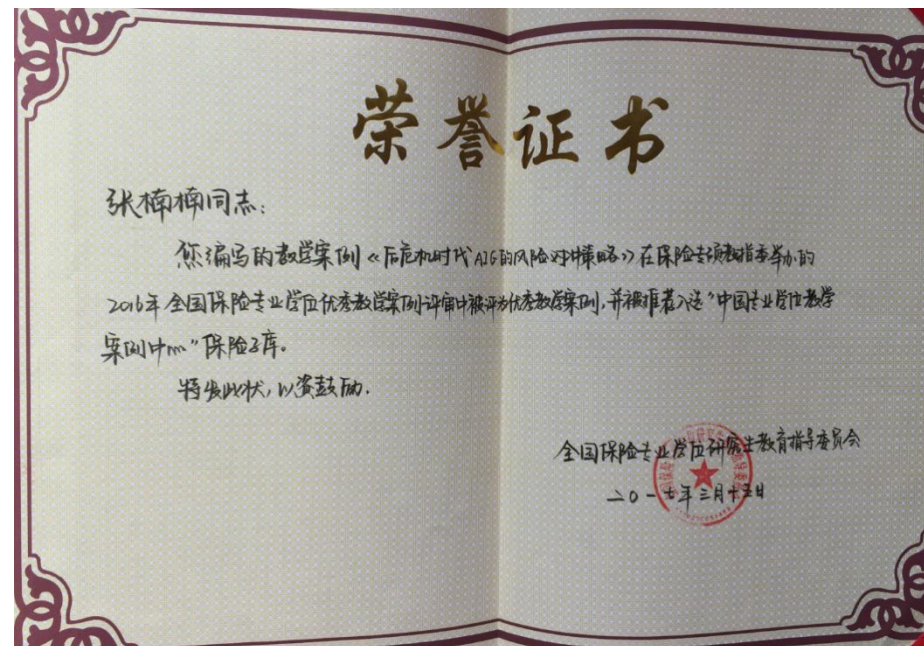 荣誉证书
张楠楠同志：
您编写的教学案例《后危机时代AIG的风险对冲策略》在保险专硕教指委举办的
2016年全国保险专业学位优秀教学案例评审中被评为优秀教学案例，并被推荐入选“中国专业学位教学
案例中心”保险子库。
特发此状，以资鼓励.
全国保险专业学位研究生教育指导委员会
二0一七年三月十五日